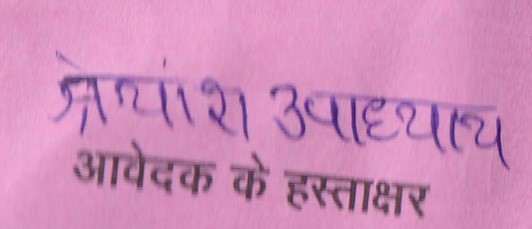 श्रेयांश उपाध्याय
आवेदक के हस्ताक्षर